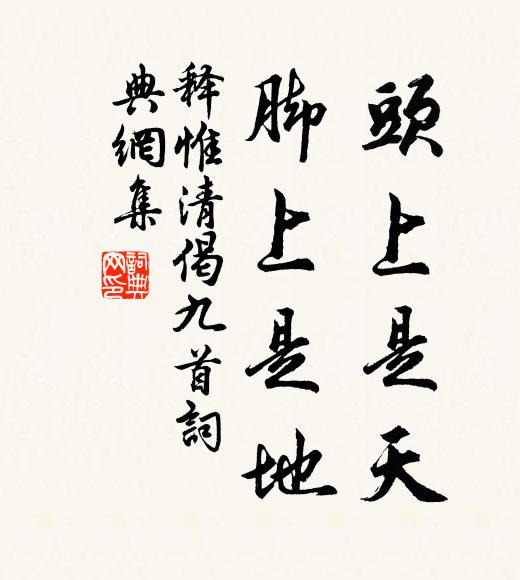 頭上是天
脚上是地
释惟清偈九首詞
典網集
詞典
网印